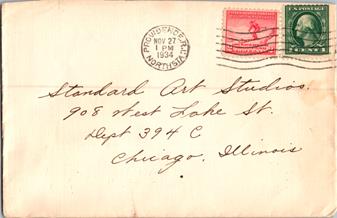 PROVIDENCE, R.I.
NOV 27
1 PM
1934
NORTH STA.
U.S. POSTAGE
CENT
Standard Art Studios.
908 West Lake St.
Dept 394 C
Chicago, Illinois